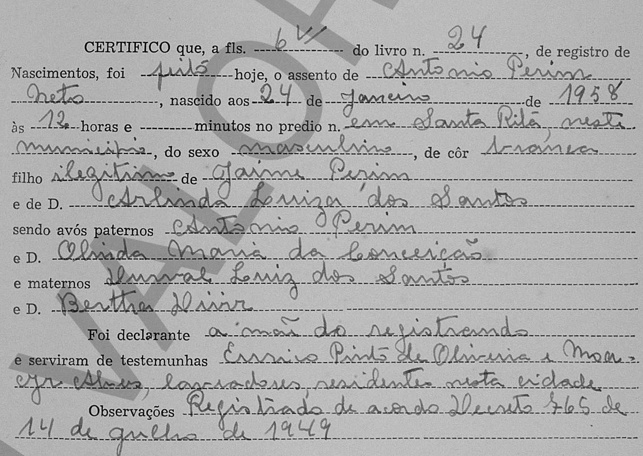 CERTIFICO que, a fls. 6 vs do livro n. 24, de registro de
Nascimentos, foi feito hoje, o assento de Antonio Perim
Neto, nascido aos 24 de Janeiro de 1958
às 12 horas e minutos no predio n. em Santa Rita, neste
municipio, do sexo masculino, de côr branca
filho ilegitimo de Jaime Perim
e de D. Arlinda Luiza dos Santos
sendo avós paternos Antonio Perim
e D. Olinda Maria da Conceição
e maternos Durval Luiz dos Santos
e D. Bertha
Foi declarante a mãi do registrando
e serviram de testemunhas Eurico Pinto de Oliveira e Moa-
cyr Alves, lavradores, residentes nesta cidade
Observações Registrado de acordo Decreto 765 de
14 de julho de 1949
VALOR